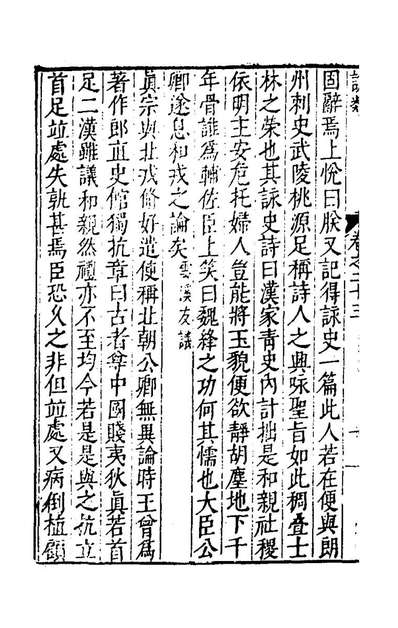 固辭焉上恱曰朕又記得詠史一篇此人若在便與朗
州刺史武陵桃源足稱詩人之興咏聖旨如此稠疊士
林之榮也其詠史詩曰漢家青史內計拙是和親社稷
依明主安危托婦人豈能將玉貌便欲靜胡塵地下千
年骨誰爲輔佐臣上笑曰魏絳之功何其懦也大臣公
卿遂息和戎之論矣雲溪友議
眞宗與北戎脩好遣使稱北朝公卿無異論時王曾爲
著作郎直史館獨抗章曰古者尊中國賤夷狄眞若首
足二漢雖議和親然禮亦不至均今若是是與之抗立
首足並處失孰甚焉臣恐久之非但並處又病倒植願
卷之二十三